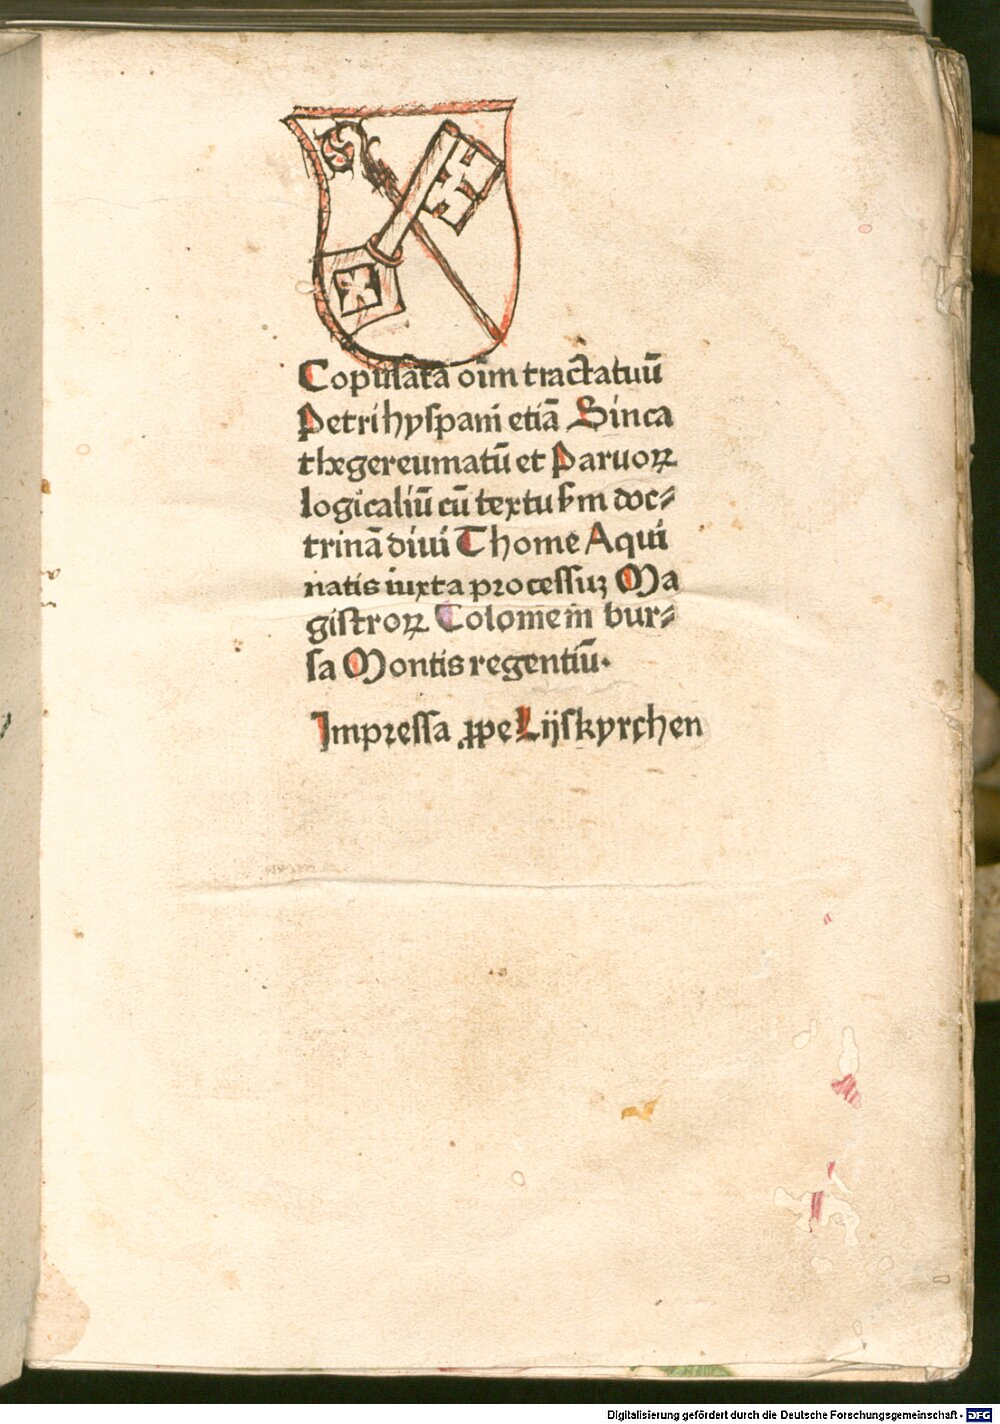 Copulata oīm tractatuū
Petri hyſpani etiā Sinca
thegereumatū et Paruoꝝ
logicaliū cū textu ẜm doc⸗
trinā diui Thome Aqui
natis iuxta proceſſuꝫ Ma
giſtroꝝ Colomem̄ bur⸗
ſa Montis regentiū.
Impreſſa ꝓpe Lijſkyrchen
Digitalisierung gefördert durch die Deutsche Forschungsgemeinschaft - DFG